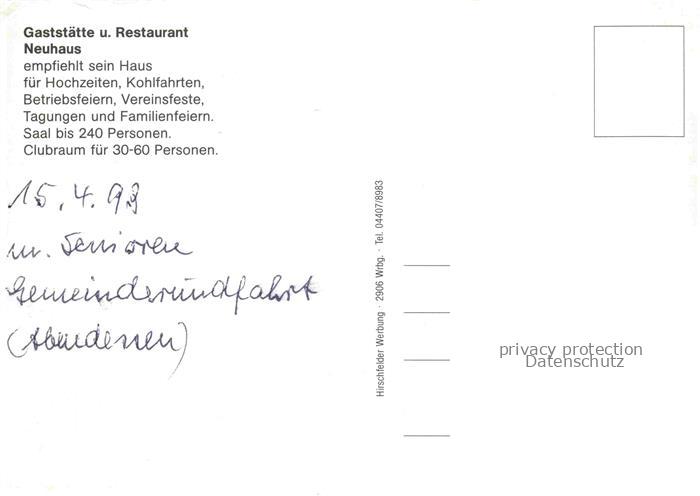 Gaststätte u. Restaurant
Neuhaus
empfiehlt sein Haus
für Hochzeiten, Kohlfahrten,
Betriebsfeiern, Vereinsfeste,
Tagungen und Familienfeiern.
Saal bis 240 Personen.
Clubraum für 30-60 Personen.
15.4.93
m. Senioren
Gemeinderundfahrt
(Abendessen)
Hirschfelder Werbung · 2906 Wrbg. · Tel. 04407/8983
privacy protection
Datenschutz